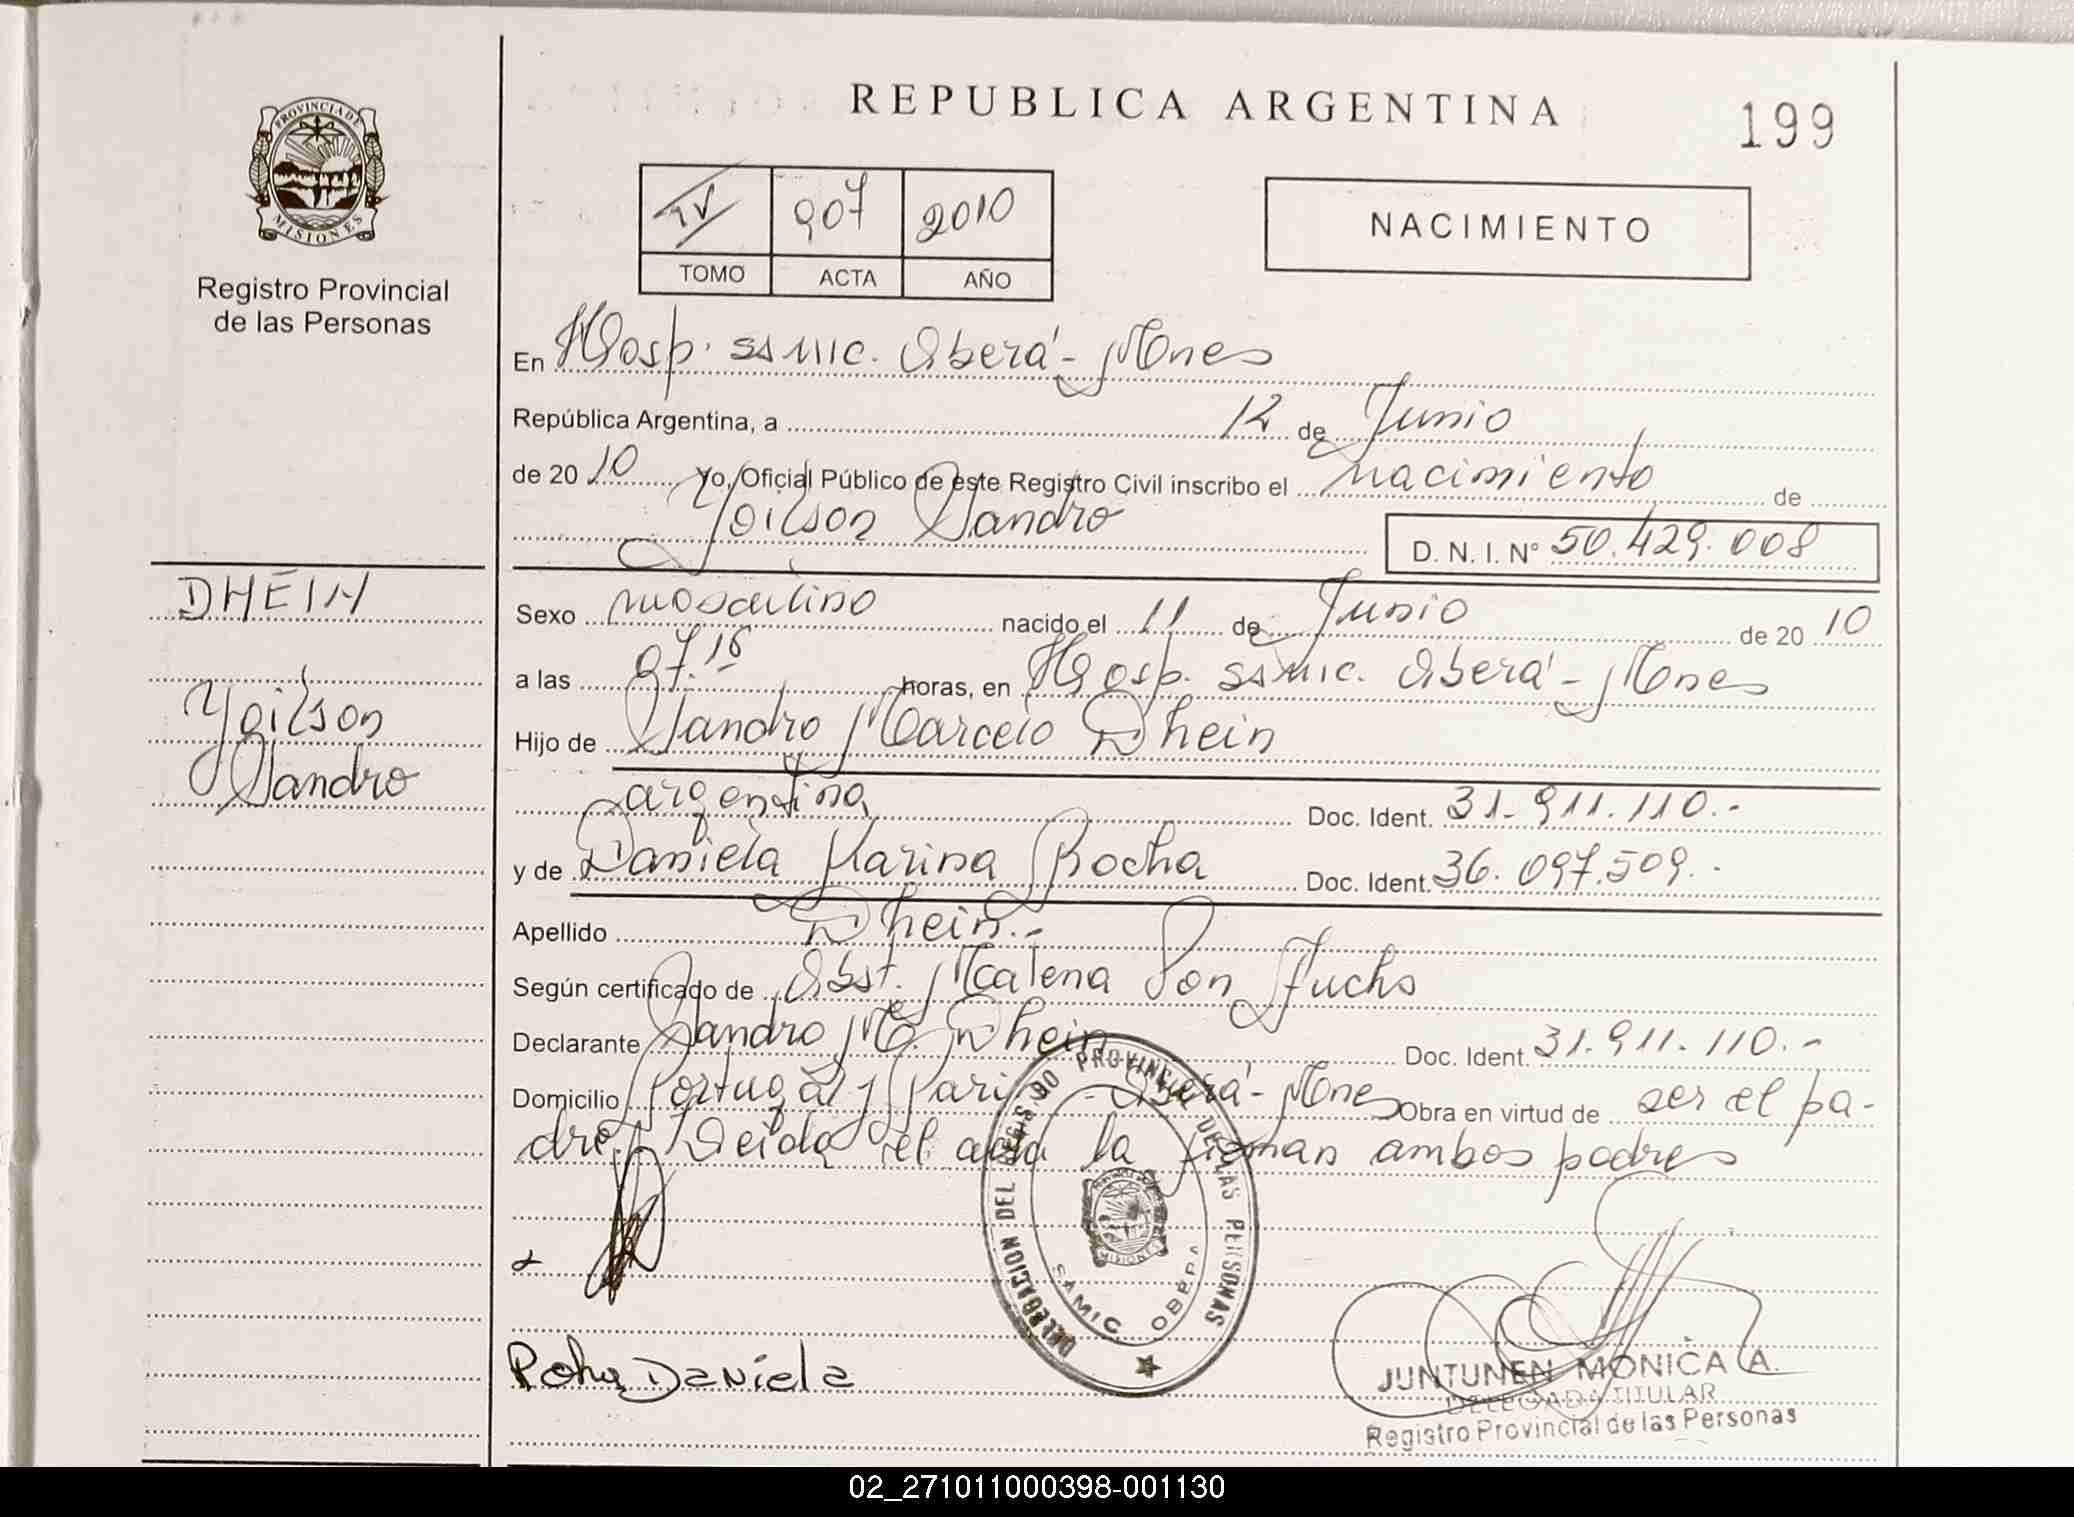 REPUBLICA ARGENTINA
199
PROVINCIA DE
MISIONES
Registro Provincial
de las Personas
IV 907 2010
TOMO ACTA AÑO
NACIMIENTO
En Hosp. SAMIC. Oberá - Mnes
República Argentina, a 12 de Junio
de 20 10 Yo, Oficial Público de este Registro Civil inscribo el nacimiento de
Yoilson Sandro
D. N. I. N° 50.429.008
DHEIN
Yoilson
Sandro
Sexo masculino nacido el 11 de Junio de 20 10
a las 07.15 horas, en Hosp. SAMIC. Oberá - Mnes
Hijo de Sandro Marcelo Dhein
argentina Doc. Ident. 31.911.110.-
y de Daniela Karina Rocha Doc. Ident. 36.097.509.-
Apellido Dhein.-
Según certificado de Obst. Malena Von Fuchs
Declarante Sandro M. Dhein Doc. Ident. 31.911.110.-
Domicilio Portugal y Paris - Oberá - Mnes Obra en virtud de ser el pa-
dre. Leida el acta la firman ambos padres
DELEGACION DEL REGISTRO PROVINCIAL DE LAS PERSONAS
MISIONES
SAMIC OBERA
Daniela
JUNTUNEN MONICA A.
DELEGADA TITULAR
Registro Provincial de las Personas
02_271011000398-001130